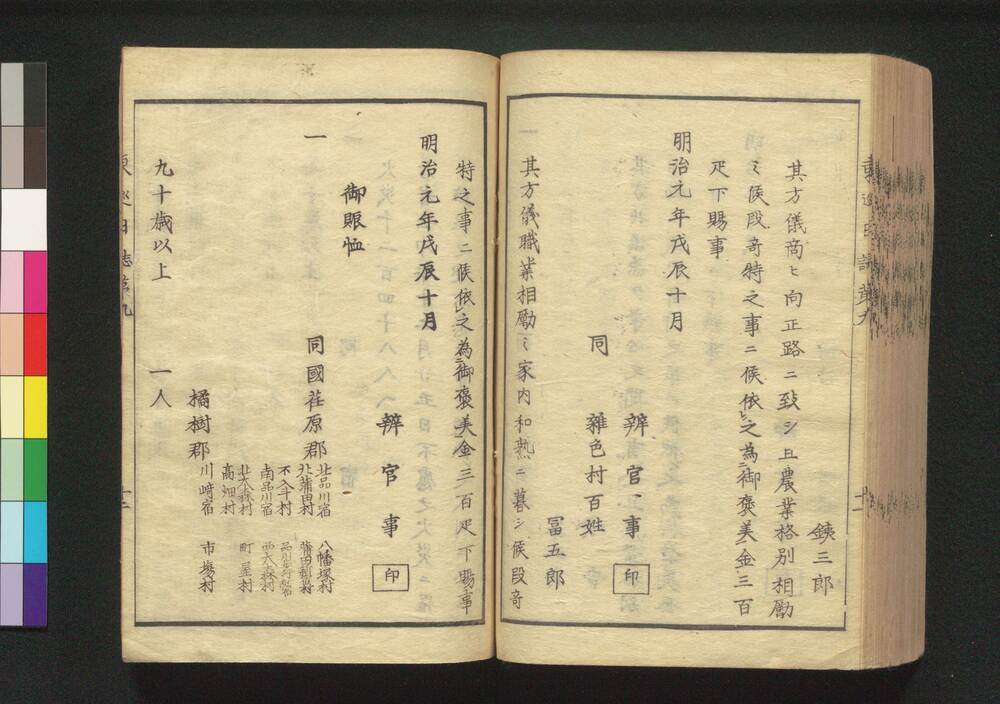 銕三郎
其方儀商ヒ向正路ニ致シ且農業格別相勵
ミ候段竒特之事ニ候依之為御褒美金三百
疋下賜事
明治元年戊辰十月
辨官事 印
同 雜色村百姓
冨五郎
一 其方儀職業相勵ミ家内和熟ニ暮シ候段竒
特之事ニ候依之為御褒美金三百疋下賜事
明治元年戊辰十月
辨官事 印
御賑恤
一 同國荏原郡
北品川宿 八幡塚村
北蒲田村
不入斗村
南品川宿
北大森村 西大森村
高畑村 町屋村
橘樹郡
川﨑宿 市塲村
九十歳以上 一人
東巡日誌第九
十二